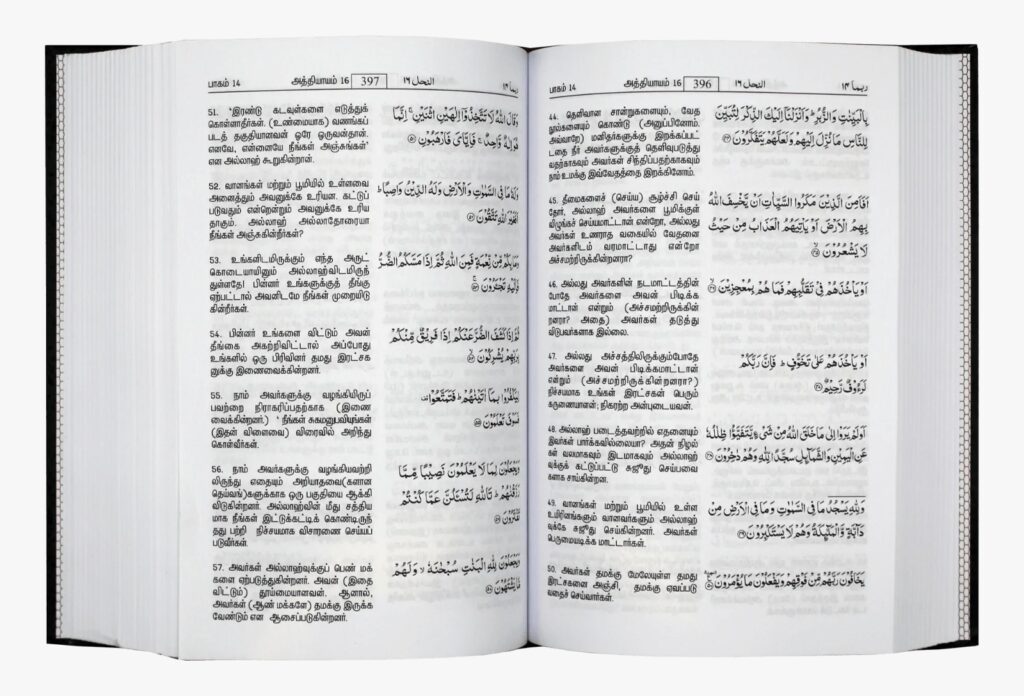 ربما ١٤
النحل ١٦
396
அத்தியாயம் 16
பாகம் 14
بِالْبَيِّنٰتِ وَالزُّبُرِ ؕ وَاَنْزَلْنَاۤ اِلَيْكَ الذِّكْرَ لِتُبَيِّنَ
لِلنَّاسِ مَا نُزِّلَ اِلَيْهِمْ وَلَعَلَّهُمْ يَتَفَكَّرُوْنَ ﴿۴۴﴾
44. தெளிவான சான்றுகளையும், வேத
நூல்களையும் கொண்டு (அனுப்பினோம்.
அவ்வாறே) மனிதர்களுக்கு இறக்கப்பட்
டதை நீர் அவர்களுக்குத் தெளிவுபடுத்து
வதற்காகவும் அவர்கள் சிந்திப்பதற்காகவும்
நாம் உமக்கு இவ்வேதத்தை இறக்கினோம்.
اَفَاَمِنَ الَّذِيْنَ مَكَرُوا السَّيِّاٰتِ اَنْ يَّخْسِفَ اللّٰهُ
بِهِمُ الْاَرْضَ اَوْ يَاْتِيَهُمُ الْعَذَابُ مِنْ حَيْثُ
لَا يَشْعُرُوْنَ ﴿۴۵﴾
45. தீமைகளைச் (செய்ய) சூழ்ச்சி செய்
தோர், அல்லாஹ் அவர்களை பூமிக்குள்
விழுங்கச் செய்யமாட்டான் என்றோ, அல்லது
அவர்கள் உணராத வகையில் வேதனை
அவர்களிடம் வரமாட்டாது என்றோ
அச்சமற்றிருக்கின்றனரா?
اَوْ يَاْخُذَهُمْ فِيْ تَقَلُّبِهِمْ فَمَا هُمْ بِمُعْجِزِيْنَ ﴿۴۶﴾
46. அல்லது அவர்களின் நடமாட்டத்தின்
போதே அவர்களை அவன் பிடிக்க
மாட்டான் என்றும் (அச்சமற்றிருக்கின்
றனரா? அதை) அவர்கள் தடுத்து
விடுபவர்களாக இல்லை.
اَوْ يَاْخُذَهُمْ عَلٰى تَخَوُّفٍ ؕ فَاِنَّ رَبَّكُمْ
لَرَءُوْفٌ رَّحِيْمٌ ﴿۴۷﴾
47. அல்லது அச்சத்திலிருக்கும்போதே
அவர்களை அவன் பிடிக்கமாட்டான்
என்றும் (அச்சமற்றிருக்கின்றனரா?)
நிச்சயமாக உங்கள் இரட்சகன் பெரும்
கருணையாளன்; நிகரற்ற அன்புடையவன்.
اَوَلَمْ يَرَوْا اِلٰى مَا خَلَقَ اللّٰهُ مِنْ شَيْءٍ يَّتَفَيَّؤُا ظِلٰلُهٗ
عَنِ الْيَمِيْنِ وَالشَّمَآئِلِ سُجَّدًا لِّلّٰهِ وَهُمْ دٰخِرُوْنَ ﴿۴۸﴾
48. அல்லாஹ் படைத்தவற்றில் எதனையும்
இவர்கள் பார்க்கவில்லையா? அதன் நிழல்
கள் வலமாகவும் இடமாகவும் அல்லாஹ்
வுக்குக் கட்டுப்பட்டு சுஜூது செய்பவை
களாக சாய்கின்றன.
وَلِلّٰهِ يَسْجُدُ مَا فِي السَّمٰوٰتِ وَمَا فِي الْاَرْضِ مِنْ
دَآبَّةٍ وَّالْمَلٰٓئِكَةُ وَهُمْ لَا يَسْتَكْبِرُوْنَ ﴿۴۹﴾
49. வானங்கள் மற்றும் பூமியில் உள்ள
உயிரினங்களும் வானவர்களும் அல்லாஹ்
வுக்கே சுஜூது செய்கின்றன. அவர்கள்
பெருமையடிக்க மாட்டார்கள்.
يَخَافُوْنَ رَبَّهُمْ مِّنْ فَوْقِهِمْ وَيَفْعَلُوْنَ مَا يُؤْمَرُوْنَ ﴿۵۰﴾
50. அவர்கள் தமக்கு மேலேயுள்ள தமது
இரட்சகனை அஞ்சி, தமக்கு ஏவப்படு
வதைச் செய்வார்கள்.
ربما ١٤
النحل ١٦
397
அத்தியாயம் 16
பாகம் 14
وَقَالَ اللّٰهُ لَا تَتَّخِذُوْۤا اِلٰهَيْنِ اثْنَيْنِ ۚ اِنَّمَا
هُوَ اِلٰهٌ وَّاحِدٌ ۚ فَاِيَّايَ فَارْهَبُوْنِ ﴿۵۱﴾
51. 'இரண்டு கடவுள்களை எடுத்துக்
கொள்ளாதீர்கள். (உண்மையாக) வணங்கப்
படத் தகுதியானவன் ஒரே ஒருவன்தான்.
எனவே, என்னையே நீங்கள் அஞ்சுங்கள்'
என அல்லாஹ் கூறுகின்றான்.
وَلَهٗ مَا فِي السَّمٰوٰتِ وَالْاَرْضِ وَلَهُ الدِّيْنُ وَاصِبًا ؕ
اَفَغَيْرَ اللّٰهِ تَتَّقُوْنَ ﴿۵۲﴾
52. வானங்கள் மற்றும் பூமியில் உள்ளவை
அனைத்தும் அவனுக்கே உரியன. கட்டுப்
படுவதும் என்றென்றும் அவனுக்கே உரிய
தாகும். அல்லாஹ் அல்லாதோரையா
நீங்கள் அஞ்சுகின்றீர்கள்?
وَمَا بِكُمْ مِّنْ نِّعْمَةٍ فَمِنَ اللّٰهِ ثُمَّ اِذَا مَسَّكُمُ الضُّرُّ
فَاِلَيْهِ تَجْئَرُوْنَ ﴿۵۳﴾
53. உங்களிடமிருக்கும் எந்த அருட்
கொடையாயினும் அல்லாஹ்விடமிருந்
துள்ளதே! பின்னர் உங்களுக்குத் தீங்கு
ஏற்பட்டால் அவனிடமே நீங்கள் முறையிடு
கின்றீர்கள்.
ثُمَّ اِذَا كَشَفَ الضُّرَّ عَنْكُمْ اِذَا فَرِيْقٌ مِّنْكُمْ
بِرَبِّهِمْ يُشْرِكُوْنَ ﴿۵۴﴾
54. பின்னர் உங்களை விட்டும் அவன்
தீங்கை அகற்றிவிட்டால் அப்போது
உங்களில் ஒரு பிரிவினர் தமது இரட்சக
னுக்கு இணைவைக்கின்றனர்.
لِيَكْفُرُوْا بِمَاۤ اٰتَيْنٰهُمْ ؕ فَتَمَتَّعُوْا
فَسَوْفَ تَعْلَمُوْنَ ﴿۵۵﴾
55. நாம் அவர்களுக்கு வழங்கியிருப்
பவற்றை நிராகரிப்பதற்காக (இணை
வைக்கின்றனர்.) ' நீங்கள் சுகமனுபவியுங்கள்
(இதன் விளைவை) விரைவில் அறிந்து
கொள்வீர்கள்.
وَيَجْعَلُوْنَ لِمَا لَا يَعْلَمُوْنَ نَصِيْبًا مِّمَّا
رَزَقْنٰهُمْ ؕ تَاللّٰهِ لَتُسْئَلُنَّ عَمَّا كُنْتُمْ
تَفْتَرُوْنَ ﴿۵۶﴾
56. நாம் அவர்களுக்கு வழங்கியவற்றி
லிருந்து எதையும் அறியாதவை(களான
தெய்வங்)களுக்காக ஒரு பகுதியை ஆக்கி
விடுகின்றனர். அல்லாஹ்வின் மீது சத்திய
மாக நீங்கள் இட்டுக்கட்டிக் கொண்டிருந்
தது பற்றி நிச்சயமாக விசாரணை செய்யப்
படுவீர்கள்.
وَيَجْعَلُوْنَ لِلّٰهِ الْبَنٰتِ سُبْحٰنَهٗ ۙ وَلَهُمْ
مَّا يَشْتَهُوْنَ ﴿۵۷﴾
57. அவர்கள் அல்லாஹ்வுக்குப் பெண் மக்
களை ஏற்படுத்துகின்றனர். அவன் (இதை
விட்டும்) தூய்மையானவன். ஆனால்,
அவர்கள் (ஆண் மக்களே) தமக்கு இருக்க
வேண்டும் என ஆசைப்படுகின்றனர்.